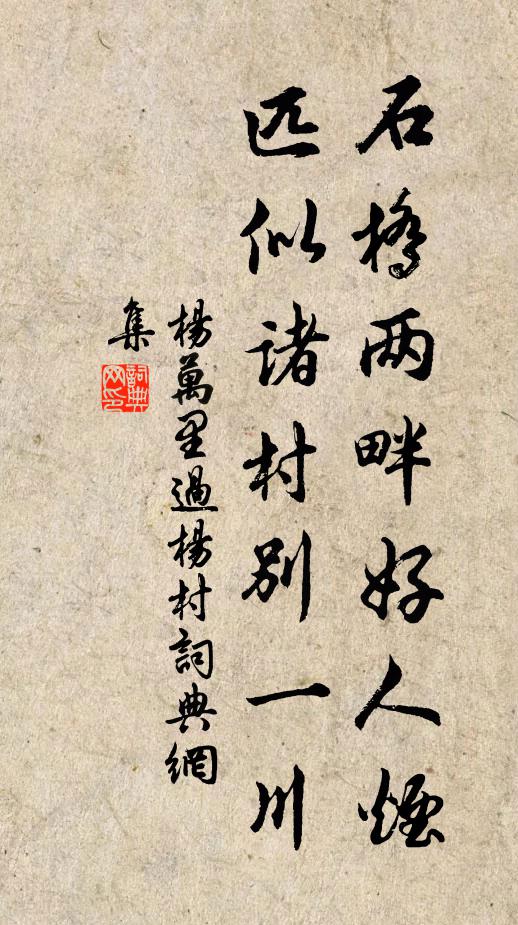 石橋两畔好人煙
匹似諸村別一川
楊萬里過楊村詞典網
集
詞典
网印